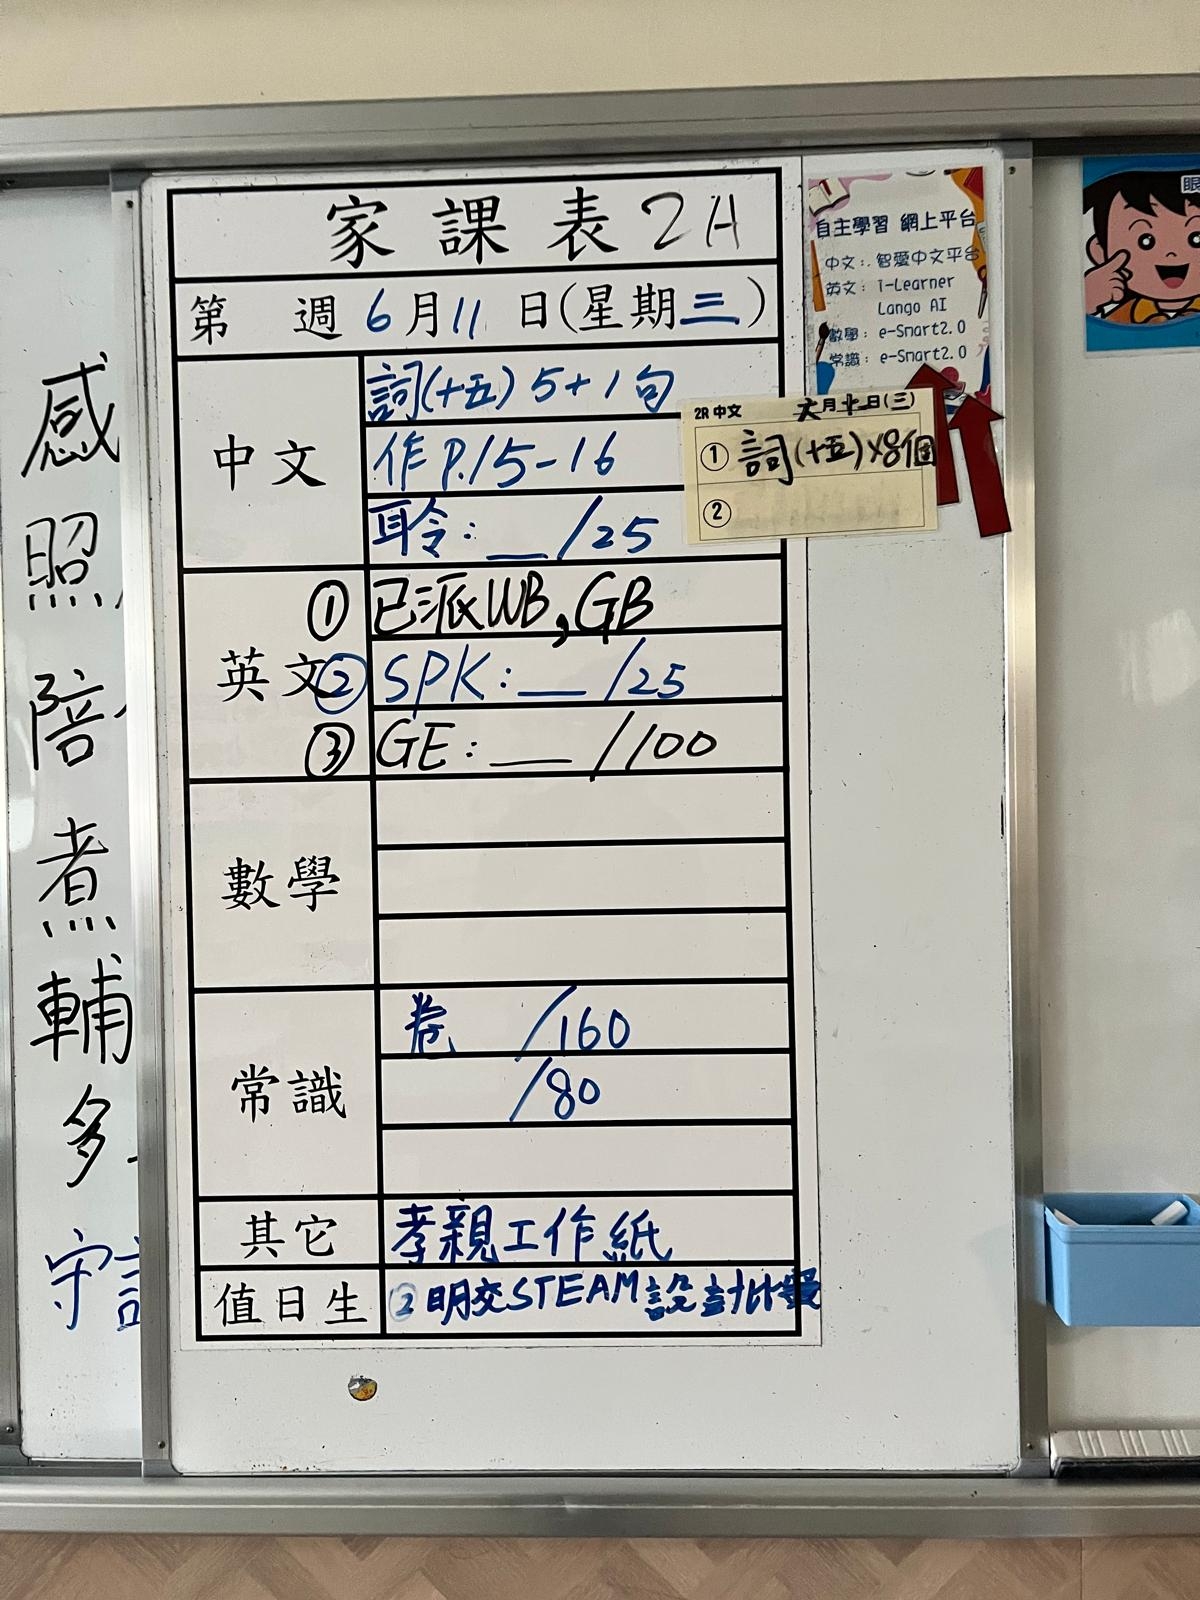 家課表 2H
第 週 6月11日(星期三)
中文
詞(十五) 5+1句
作 P.15-16
耳令: __/25
英文
① 已派WB,GB
② SPK: __/25
③ GE: __/100
數學
常識
卷 /160
/80
其它
孝親工作紙
值日生
② 明交STEAM設計比賽
自主學習 網上平台
中文: 智愛中文平台
英文: i-Learner
Lango AI
數學: e-Smart2.0
常識: e-Smart2.0
2R 中文 六月十一日(三)
① 詞(十五)x8個
②
感
照
陪
煮
輔
多
守
眼